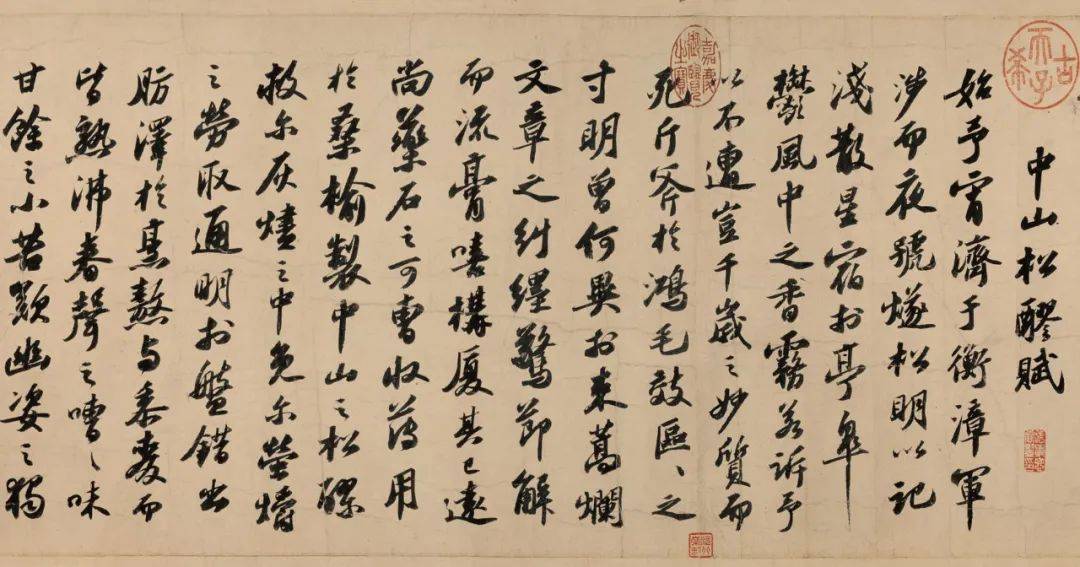 古希天子
中山松醪賦
始予宵濟于衡漳軍
涉而夜號燧松明以記
淺散星宿於亭皐
鬱風中之香霧若訴予
以不遭豈千歲之妙質而
死斤斧於鴻毛效區〻之
寸明曾何異於束蒿爛
文章之糾纆驚節解
而流膏嘻構厦其已遠
尚藥石之可曹收薄用
於桑榆製中山之松醪
救尔灰燼之中免尔螢爝
之勞取通明於盤錯出
肪澤於烹熬与黍麥而
皆熟沸舂聲之嘈〻味
甘餘之小苦歎幽姿之獨
嘉慶御覽之寶